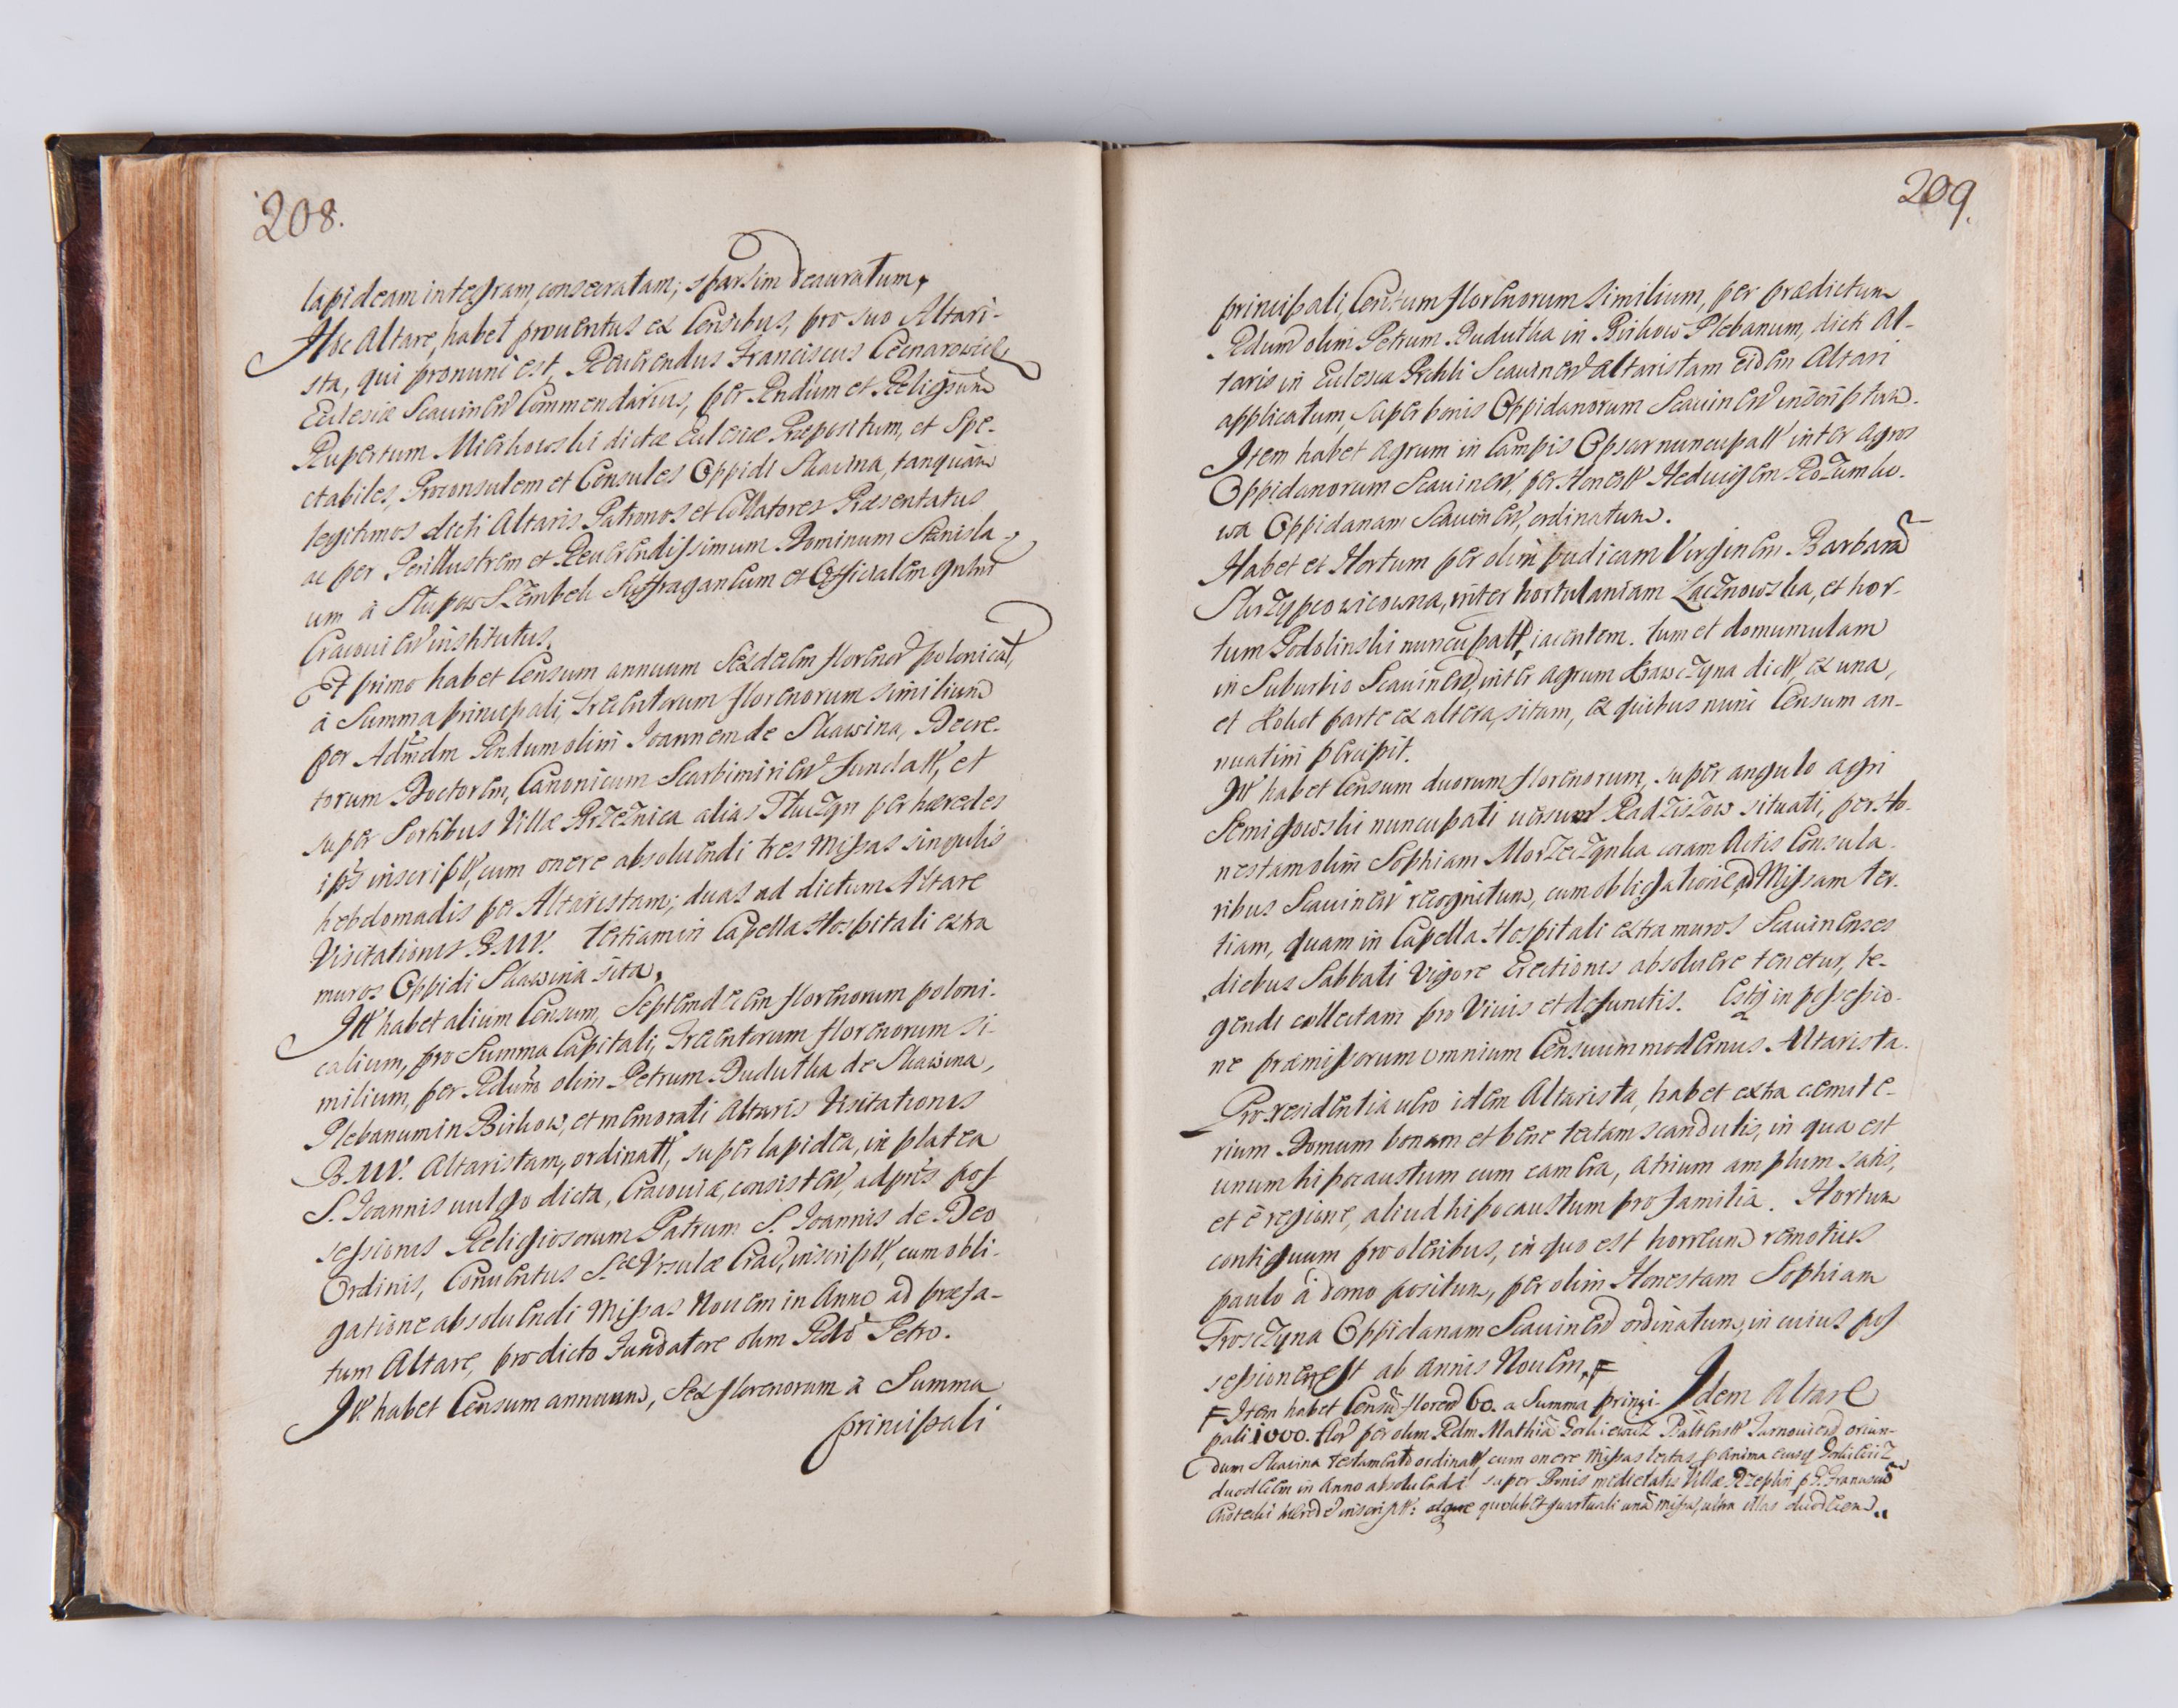 208.
lapideam integram, consecratam; sparsim deauratum.
Hoc Altare, habet prouentus ex Censibus, pro suo Altari-
sta, qui pronunc est, Reuerendus Franciscus Cecnarowicz
Eclesiæ Scauinen Commendarius, per Rndum et Religsum
Rupertum Mierkowski dictæ Eclesiæ Præpositum, et Spe-
ctabiles, Proconsulem et Consules Oppidi Skawina, tanquam
legitimos dicti Altaris Patronos et Collatores Præsentatus
ac per Perillustrem et Reuerendissimum Dominum Stanisla-
um à Słupow Szembek Suffraganeum et Officialem Gnlm
Cracouien institutus.
Et primo habet Censum annuum Sexdecim florenor polonical,
à Summa principali, Trecentorum florenorum similium
per Admdm Rndum olim Joannem de Skawina, Decre-
torum Doctorem, Canonicum Scarbimirien fundatt, et
super Sortibus Villæ Brzeznica alias Tłuczyn per hæredes
ips inscriptt, cum onere absoluendi tres Missas singulis
hebdomadis per Altaristam; duas ad dictum Altare
Visitationis B.M.V. tertiam in Capella Hospitali extra
muros Oppidi Skawina sita.
Itt habet alium Censum, Septemdecim florenorum poloni-
calium, pro Summa Capitali, Trecentorum florenorum si-
milium, per Rdum olim Petrum Dudutka de Skawina,
Plebanum in Birkow, et memorati Altaris Visitationis
B.M.V. Altaristam, ordinatt, super lapidea, in platea
S. Joannis uulgo dicta, Cracouiæ, consisten, adpns pos
sessionis Religiosorum Patrum S. Joannis de Deo
Ordinis, Conuentus S. Vrsulæ Crac, inscriptt, cum obli-
gatione absoluendi Missas Nouem in Anno ad præfa-
tum Altare, pro dicto Fundatore olim Rdo Petro.
Itt habet Censum annuum, Sex florenorum à Summa
principali
209.
principali, Centum florenorum similium, per prædictum
Rdum olim Petrum Dudutka in Birkow Plebanum, dicti Al-
taris in Eclesia Prchli Scauinen altaristam eidem Altari
applicatum, super bonis Oppidanorum Scauinen inscriptum.
Item habet Agrum in Campis Opsar nuncupatt inter Agros
Oppidanorum Scauinen, per Honestt Heduigem Rozumko-
wa Oppidanam Scauinen, ordinatum.
Habet et Hortum per olim pudicam Virginem Barbaram
Skrzypcowicowna, inter hortulaniam Łacznowska, et hor-
tum Podolinski nuncupatt, iacentem. tum et domumulam
in Suburbio Scauinen, inter agrum Krawczyna dictt, ex una,
et Kokot parte ex altera, sitam, ex quibus nunc Censum an-
nuatim percipit.
Itt habet Censum duorum florenorum, super angulo agri
Semigowski nuncupati uersum Radziszow situati, per Ho-
nestam olim Sophiam Morzeczynka coram Actis Consula-
ribus Scauinen recognitum, cum obligatione ad Missam ter-
tiam, quam in Capella Hospitali extra muros Scauinenses
diebus Sabbati Vigore Erectionis absoluere tenetur, le-
gendi collectam pro Viuis et defunctis. Estq in possessio-
ne præmissorum omnium Censuum modernus Altarista.
Pro residentia uero idem Altarista, habet extra cæmite-
rium Domum bonam et bene tectam scandulis, in qua est
unum hipocaustum cum camera, atrium amplum satis,
et è regione, aliud hipocaustum pro familia. Hortum
contiguum pro oleribus, in quo est horreum remotius
paulo à domo positum, per olim Honestam Sophiam
Troszczyna Oppidanam Scauinen ordinatum, in cuius pos
sessione est ab annis Nouem.
Idem Altare
Item habet Censum floren 60. a Summa princi-
pali 1000. flor per olim Rdm Mathiam Tarnouien oriun-
dum Skawina testamento ordinatt, cum onere Missas lectas p anima eiusq
duodecim in Anno absoluendi super Bonis medietatis Villæ Rzeplin
inscriptt: quolibet quartuali una missa, ultra illas duodecim.